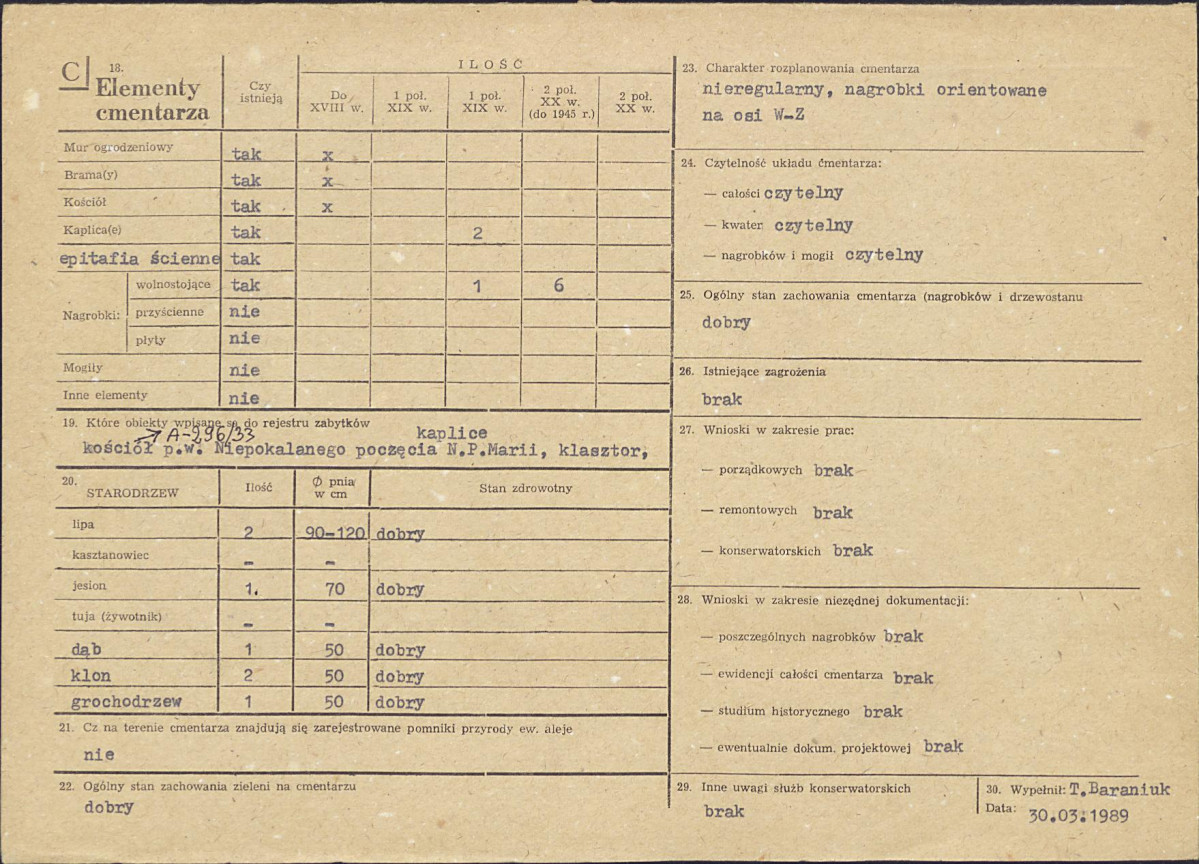 C
18.
Elementy
cmentarza
Czy
istnieją
ILOŚĆ
Do
XVIII w.
1 poł.
XIX w.
1 poł.
XIX w.
2 poł.
XX w.
(do 1945 r.)
2 poł.
XX w.
Mur ogrodzeniowy tak x
Brama(y) tak x
Kościół tak x
Kaplica(e) tak 2
epitafia ścienne tak
Nagrobki:
wolnostojące tak 1 6
przyścienne nie
płyty nie
Mogiły nie
Inne elementy nie
19. Które obiekty wpisane są do rejestru zabytków
A-296/33 kaplice
kościół p.w. Niepokalanego poczęcia N.P.Marii, klasztor,
20.
STARODRZEW
Ilość
Ø pnia
w cm
Stan zdrowotny
lipa 2 90-120 dobry
kasztanowiec - -
jesion 1. 70 dobry
tuja (żywotnik) - -
dąb 1 50 dobry
klon 2 50 dobry
grochodrzew 1 50 dobry
21. Cz na terenie cmentarza znajdują się zarejestrowane pomniki przyrody ew. aleje
nie
22. Ogólny stan zachowania zieleni na cmentarzu
dobry
23. Charakter rozplanowania cmentarza
nieregularny, nagrobki orientowane
na osi W-Z
24. Czytelność układu cmentarza:
— całości czytelny
— kwater czytelny
— nagrobków i mogił czytelny
25. Ogólny stan zachowania cmentarza (nagrobków i drzewostanu
dobry
26. Istniejące zagrożenia
brak
27. Wnioski w zakresie prac:
— porządkowych brak
— remontowych brak
— konserwatorskich brak
28. Wnioski w zakresie niezędnej dokumentacji:
— poszczególnych nagrobków brak
— ewidencji całości cmentarza brak
— studium historycznego brak
— ewentualnie dokum. projektowej brak
29. Inne uwagi służb konserwatorskich
brak
30. Wypełnił: T.Baraniuk
Data: 30.03.1989